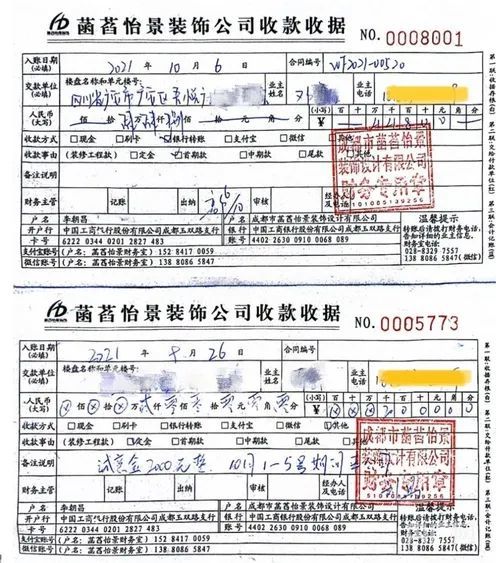 菡萏怡景装饰公司收款收据 NO.0008001
入账日期(必填) 2021 年 10 月 6 日 合同编号
交款单位(必填) 楼盘名称和单元楼号: 业主姓名 业主电话
人民币(大写) 佰 拾 万 仟 佰 拾 元 角 分 (小写) 百 十 万 千 百 十 元 角 分
收款方式 □现金 □刷卡 银行转账 □支付宝 □微信 □其他
收款事由 (装修工程款) □定金 □首期款 中期款 □尾期款 □其他
备注说明
财务主管 记账 出纳 经办人及电话
成都市菡萏怡景
装饰设计有限公司
财务专用章
5101005139256
户名 李朝昌 户名 成都市菡萏怡景装饰设计有限公司 温馨提示
开户行 中国工商银行股份有限公司成都玉双路支行 开户行 中国工商银行股份有限公司成都玉双路支行 转账后请拨打财务电话,
卡号 6222 0344 0201 2827 483 账号 4402 2630 0910 0068 089 告知详细的业主信息.
支付宝账号 (户名: 菡萏怡景财务室) 152 8417 0059 财务电话: 028-8329 7557
微信账号 (户名: 菡萏怡景财务) 138 8086 5847 138 8086 5847(微信)
第一联:收据存根(白) 第二联:交给付款单位(红) 第三联:会计记账(黄)
菡萏怡景装饰公司收款收据 NO.0005773
入账日期(必填) 2021 年 9 月 26 日 合同编号
交款单位(必填) 楼盘名称和单元楼号: 业主姓名 业主电话
人民币(大写) ⊗ 佰 ⊗ 拾 ⊗ 万 贰 仟 零 佰 零 拾 零 元 零 角 零 分 (小写) 百 十 万 千 百 十 元 角 分 2 0 0 0 0 0
收款方式 □现金 □刷卡 □银行转账 □支付宝 □微信 □其他
收款事由 (装修工程款) □定金 □首期款 □中期款 □尾期款 □其他
备注说明 诚意金2000元整 10月1-5号期间
财务主管 记账 出纳 经办人及电话
成都市菡萏怡景
装饰设计有限公司
财务专用章
5101005139256
户名 李朝昌 户名 成都市菡萏怡景装饰设计有限公司 温馨提示
开户行 中国工商银行股份有限公司成都玉双路支行 开户行 中国工商银行股份有限公司成都玉双路支行 转账后请拨打财务电话,
卡号 6222 0344 0201 2827 483 账号 4402 2630 0910 0068 089
支付宝账号 (户名: 菡萏怡景财务室) 152 8417 0059 028-8329 7557
微信账号 (户名: 菡萏怡景财务) 138 8086 5847 138 8086 5847(微信)
第一联:收据存根(白) 第二联:交给付款单位(红) 第三联:会计记账(黄)